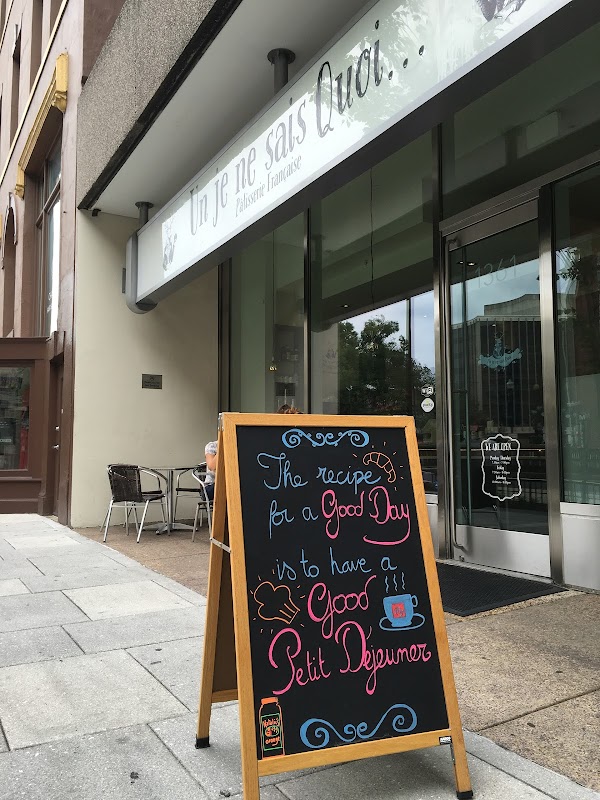 Un je ne sais Quoi...
Patisserie Française
1361
WE ARE OPEN
The recipe
for a Good Day
is to have a
Good
Petit Déjeuner